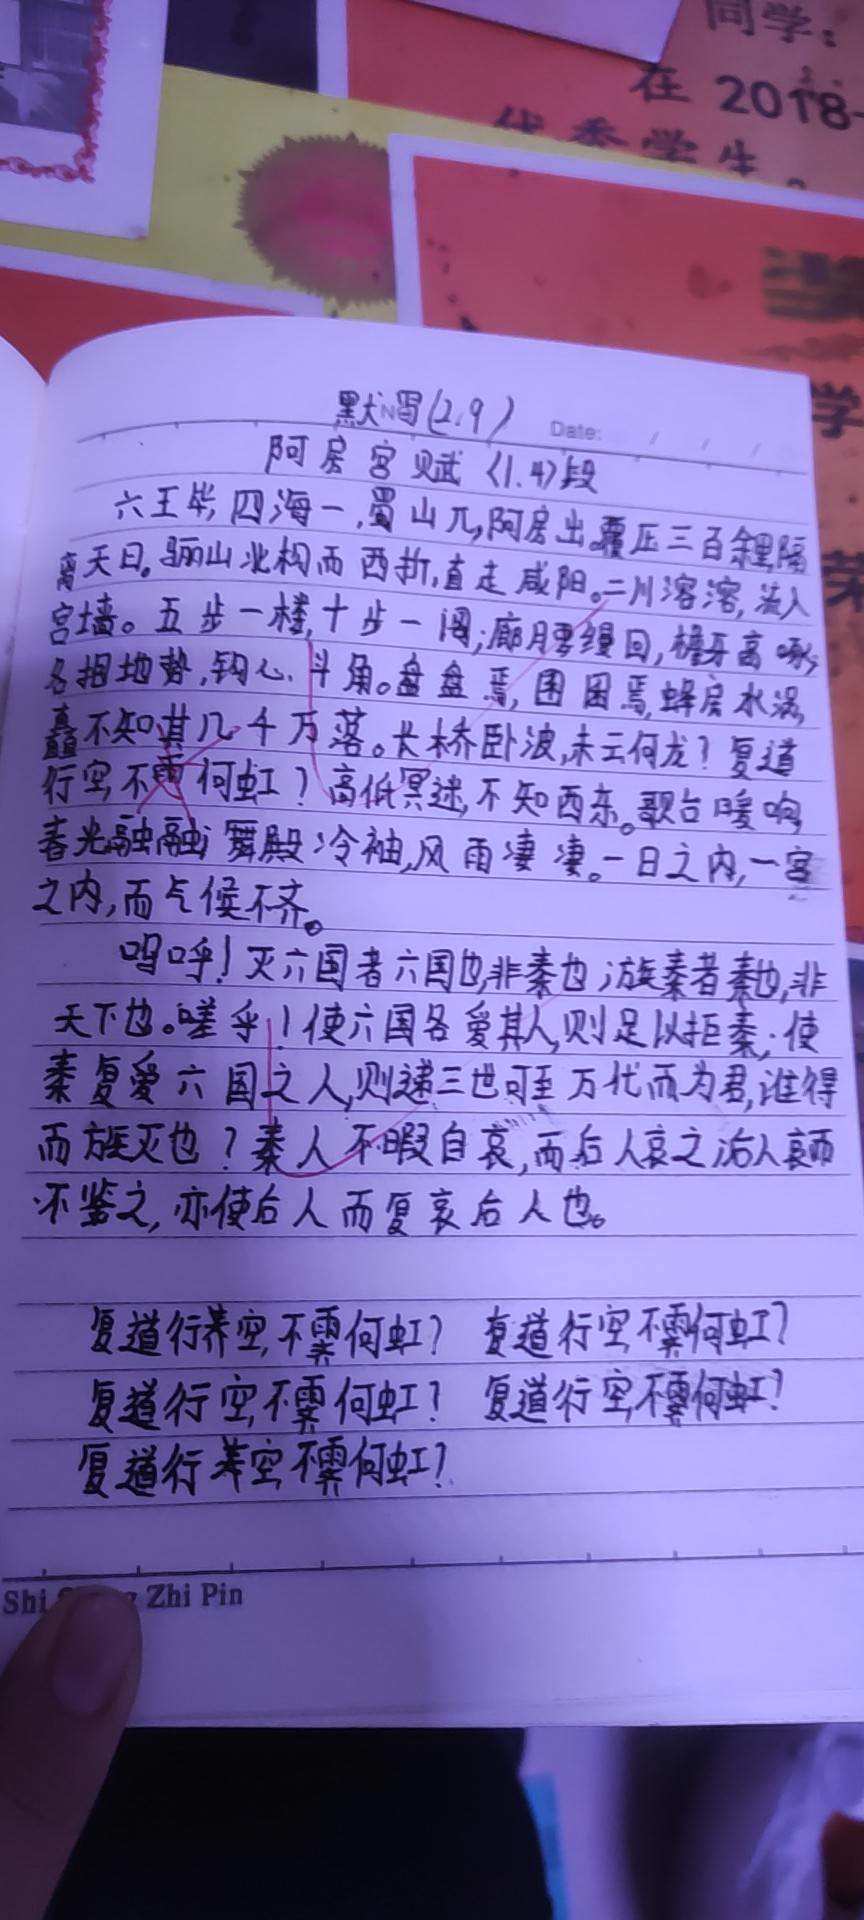 同学：
在 2018-
优秀学生
学
荣
默写(2.9)
Date: / / /
阿房宫赋〈1.4〉段
六王毕,四海一,蜀山兀,阿房出。覆压三百余里,隔
离天日。骊山北构而西折,直走咸阳。二川溶溶,流入
宫墙。五步一楼,十步一阁;廊腰缦回,檐牙高啄;
各抱地势,钩心斗角。盘盘焉,囷囷焉,蜂房水涡,
矗不知其几千万落。长桥卧波,未云何龙?复道
行空,不霁何虹?高低冥迷,不知西东。歌台暖响,
春光融融;舞殿冷袖,风雨凄凄。一日之内,一宫
之内,而气候不齐。
呜呼!灭六国者六国也,非秦也;族秦者秦也,非
天下也。嗟乎!使六国各爱其人,则足以拒秦;使
秦复爱六国之人,则递三世可至万代而为君,谁得
而族灭也?秦人不暇自哀,而后人哀之;后人哀而
不鉴之,亦使后人而复哀后人也。
复道行空,不霁何虹? 复道行空,不霁何虹?
复道行空,不霁何虹? 复道行空,不霁何虹?
复道行空,不霁何虹?
Shi Zhi Pin